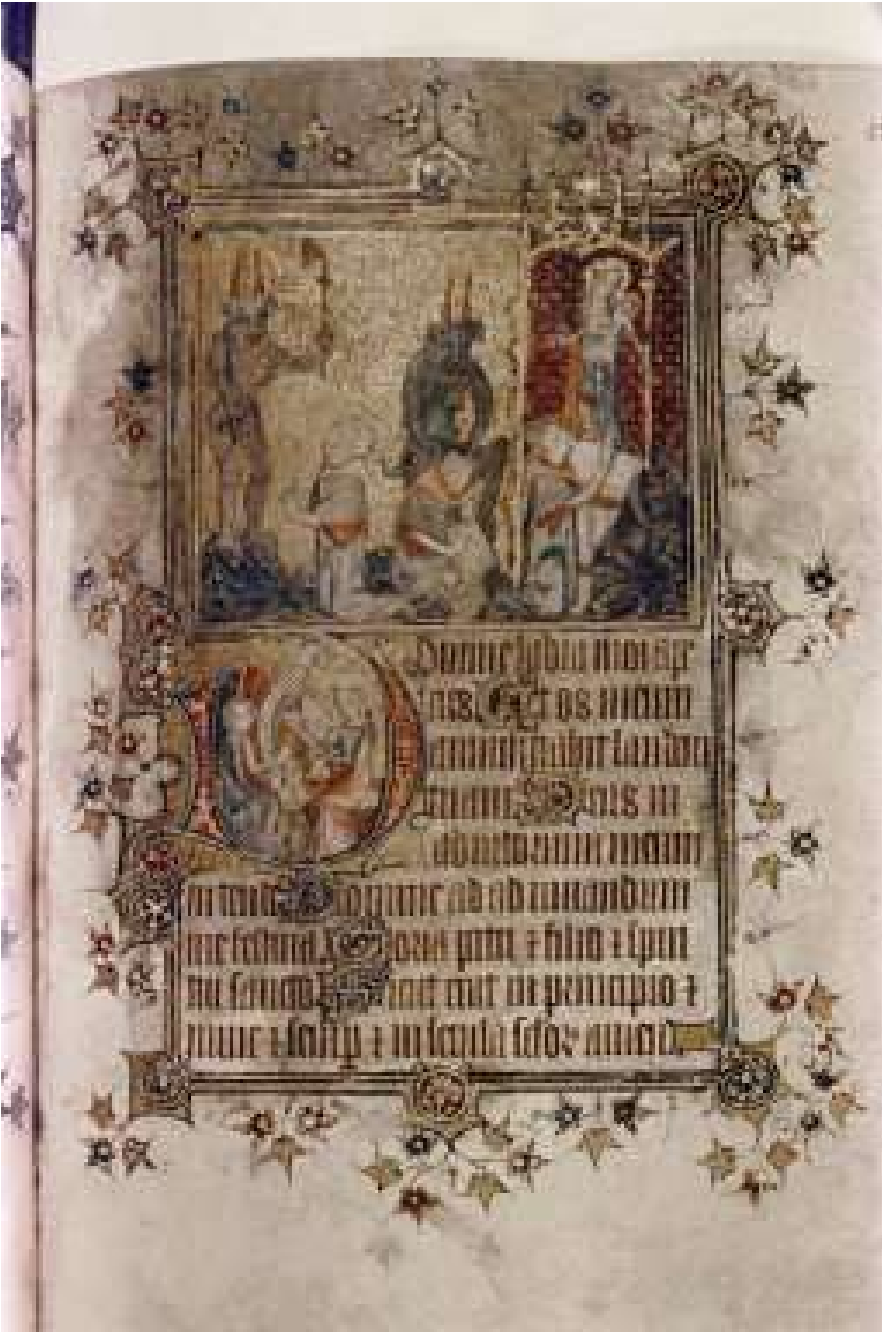 Domine labia mea ape
ries. Et os meum
annunciabit laudem
tuam. Deus in
adiutorium meum
intende. Domine ad adiuvandum
me festina. Gloria pri. ⁊ filio ⁊ spiri
tui sancto. Sicut erat in principio ⁊
nunc ⁊ semp ⁊ in secula sclor amen.